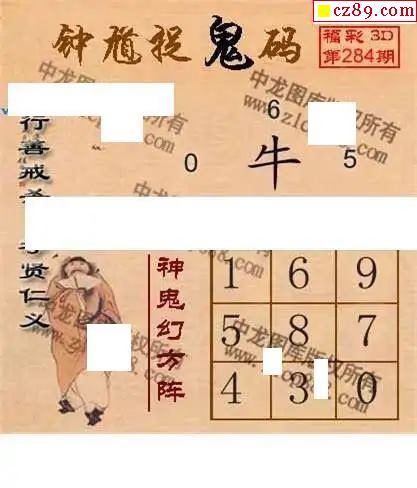 cz89.com
钟馗捉鬼码
福彩 3D
第284期
6
0 牛 5
行善戒杀
孝贤仁义
神鬼幻方阵
1 6 9
5 8 7
4 3 0
中龙图库版权所有
中龙图库版权所有
中龙图库版权所有